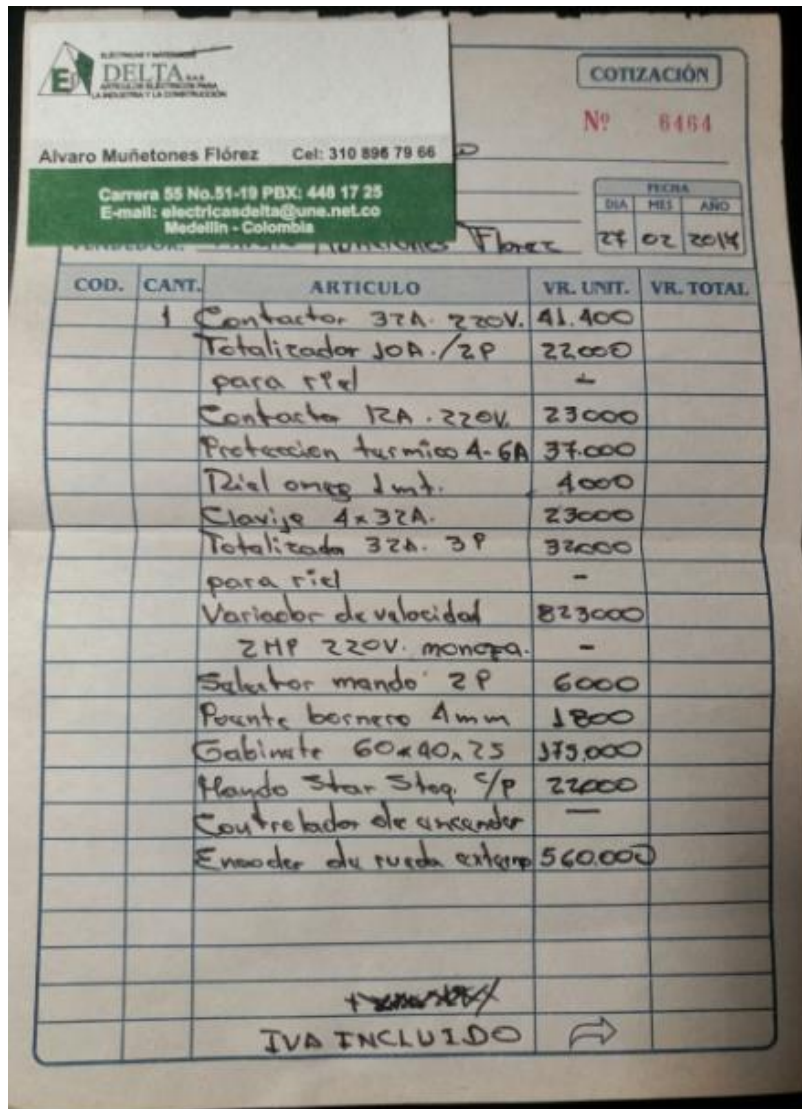 ELÉCTRICOS Y MATERIALES
DELTA S.A.S
ARTICULOS ELECTRICOS PARA
LA INDUSTRIA Y LA CONSTRUCCIÓN
COTIZACIÓN
Nº 6464
Alvaro Muñetones Flórez Cel: 310 896 79 66
Carrera 55 No.51-19 PBX: 448 17 25
E-mail: electricasdelta@une.net.co
Medellin - Colombia
FECHA
DIA MES AÑO
VENDEDOR: Muñetones Florez 27 02 2014
COD. CANT. ARTICULO VR. UNIT. VR. TOTAL
1 Contactor 32A. 220V. 41.400
Totalizador 10A./2P 22000
para riel -
Contactor 12A. 220V. 23000
Proteccion turmico 4-6A 37.000
Riel omeg 1mt. 4000
Clavije 4x32A. 23000
Totalizador 32A. 3P 32000
para riel -
Variador de velocidad 823000
2HP 220V. monofa. -
Selector mando 2P 6000
Puente bornero 4mm 1800
Gabinete 60x40x25 175.000
Mando Star Stop. c/p 22000
Controlador de -
Encoder de rueda externo 560.000
IVA INCLUIDO